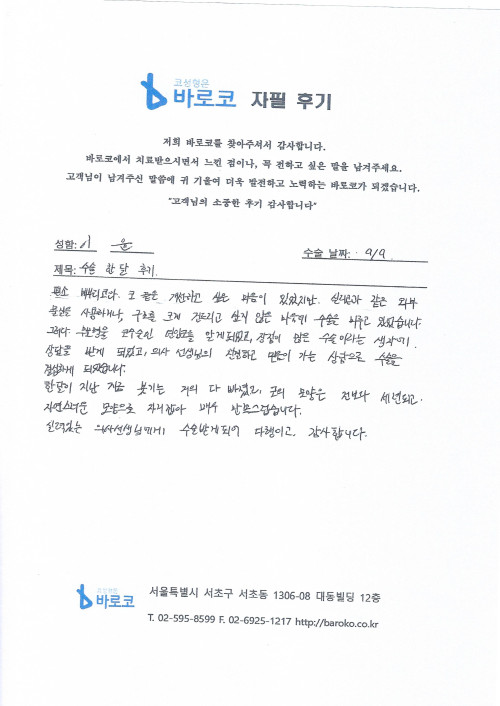 코성형은
바로코 자필 후기
저희 바로코를 찾아주셔서 감사합니다.
바로코에서 치료받으시면서 느낀 점이나, 꼭 전하고 싶은 말을 남겨주세요.
고객님이 남겨주신 말씀에 귀 기울여 더욱 발전하고 노력하는 바로코가 되겠습니다.
"고객님의 소중한 후기 감사합니다"
성함: 윤 수술 날짜: 9/9.
제목: 수술 한 달 후기.
평소 코 끝은 개선하고 싶은 마음이 있었지만, 같은 외부
물질은 사용하거나, 구조를 크게 건드리고 싶지 않은 마음에 수술은 미루고 있었습니다.
그러다 무보형물 코수술인 알게되었고, 장점이 많은 수술이라는 생각에.
상담을 받게 되었고, 의사 선생님의 친절하고 믿음이 가는 상담으로 수술을
결심하게 되었습니다.
한달이 지난 지금 붓기는 거의 다 빠졌고, 코의 모양은 전보다 세련되고.
자연스러운 모양으로 자리잡아 매우 만족스럽습니다.
실력있는 의사선생님에게 수술받게되어 다행이고, 감사합니다.
코성형은
바로코
서울특별시 서초구 서초동 1306-08 대동빌딩 12층
T. 02-595-8599 F. 02-6925-1217 http://baroko.co.kr